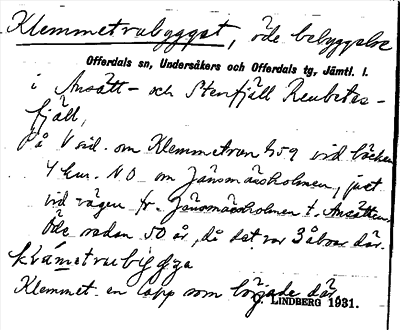 Klemmetrubygget, öde bebyggelse
Offerdals sn, Undersåkers och Offerdals tg, Jämtl. l.
i Ansätt- och Stenfjäll Renbetes-
fjäll,
På V sid. om Klemmetrun 459 vid bäcken
4 km. NO om Jänsmässholmen, just
vid vägen fr. Jänsmässholmen t. Ansätten.
Öde sedan 50 år, då det var 3 åboar där.
Klemmet en lapp som började där
C. LINDBERG 1931.